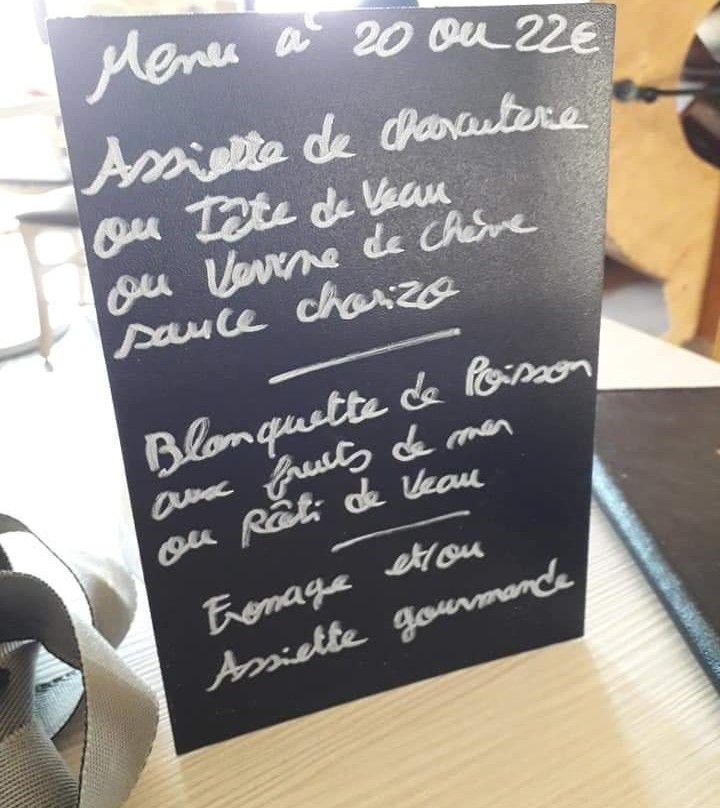 Menu à 20 ou 22€
Assiette de charcuterie
ou Tête de Veau
ou Verrine de chèvre
sauce chorizo
Blanquette de Poisson
aux fruits de mer
ou Rôti de Veau
Fromage et/ou
Assiette gourmande